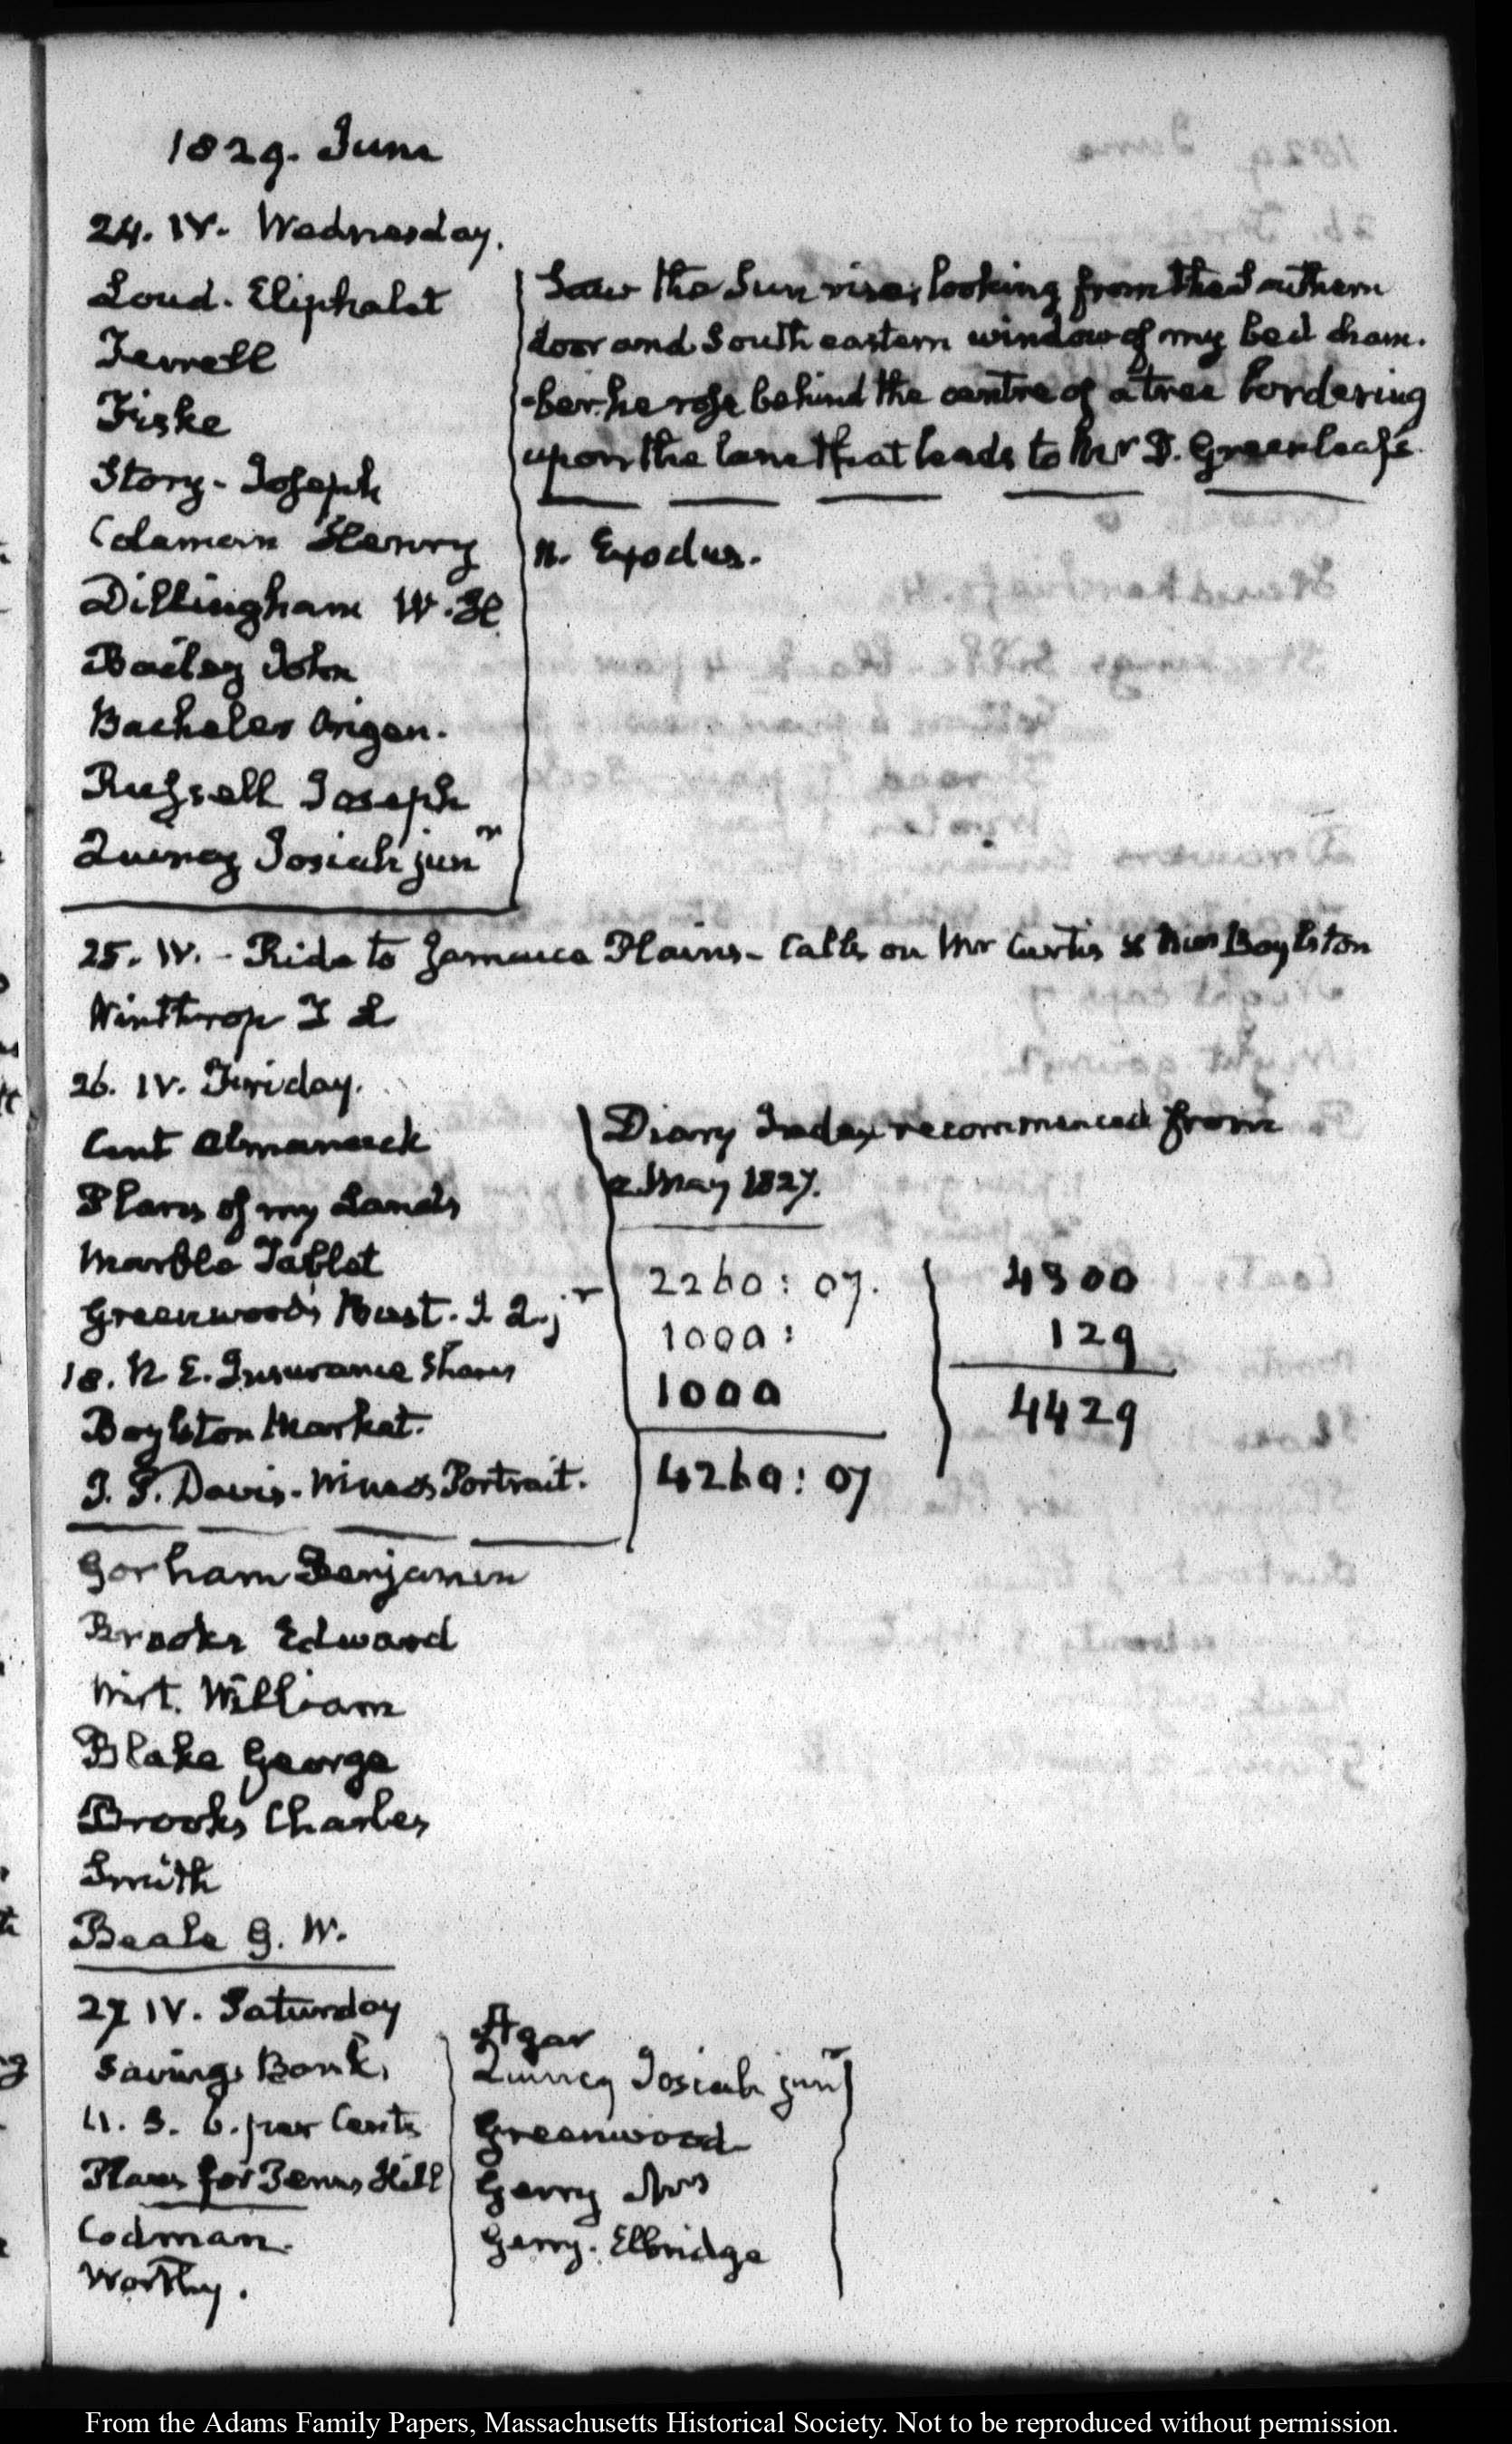 1829. June
24. IV. Wednesday.
Loud. Eliphalet
Terrell
Fiske
Story. Joseph
Coleman Henry
Dillingham W. H
Bailey John
Bacheler Origen.
Russell Joseph
Quincy Josiah junr
Saw the Sun rise, looking from the Southern
door and South eastern window of my bed cham-
-ber. he rose behind the centre of a tree bordering
upon the lane that leads to Mr D. Greenleaf's
N. Exodus.
25. IV. - Ride to Jamaica Plains - Calls on Mr Curtis & Mrs Boylston
Winthrop T L
26. IV. Friday.
Cent Almanack
Plans of my Lands
Marble Tablet
Greenwood's Bust. J Q. jr
18. N. E. Insurance Shares
Boylston Market.
J. P. Davis. Portrait.
Diary Index recommenced from
2 May 1827.
2260: 07.
1000:
1000
4260: 07
4300
129
4429
Gorham Benjamin
Brooks Edward
Wirt. William
Blake George
Brooks Charles
Smith
Beale G. W.
27 IV. Saturday
Savings Bank.
U. S. 6. per Cents
Plans for Penns Hill
Codman.
Worthy.
Agar
Quincy Josiah junr
Greenwood
Gerry Mrs
Gerry. Elbridge
From the Adams Family Papers, Massachusetts Historical Society. Not to be reproduced without permission.